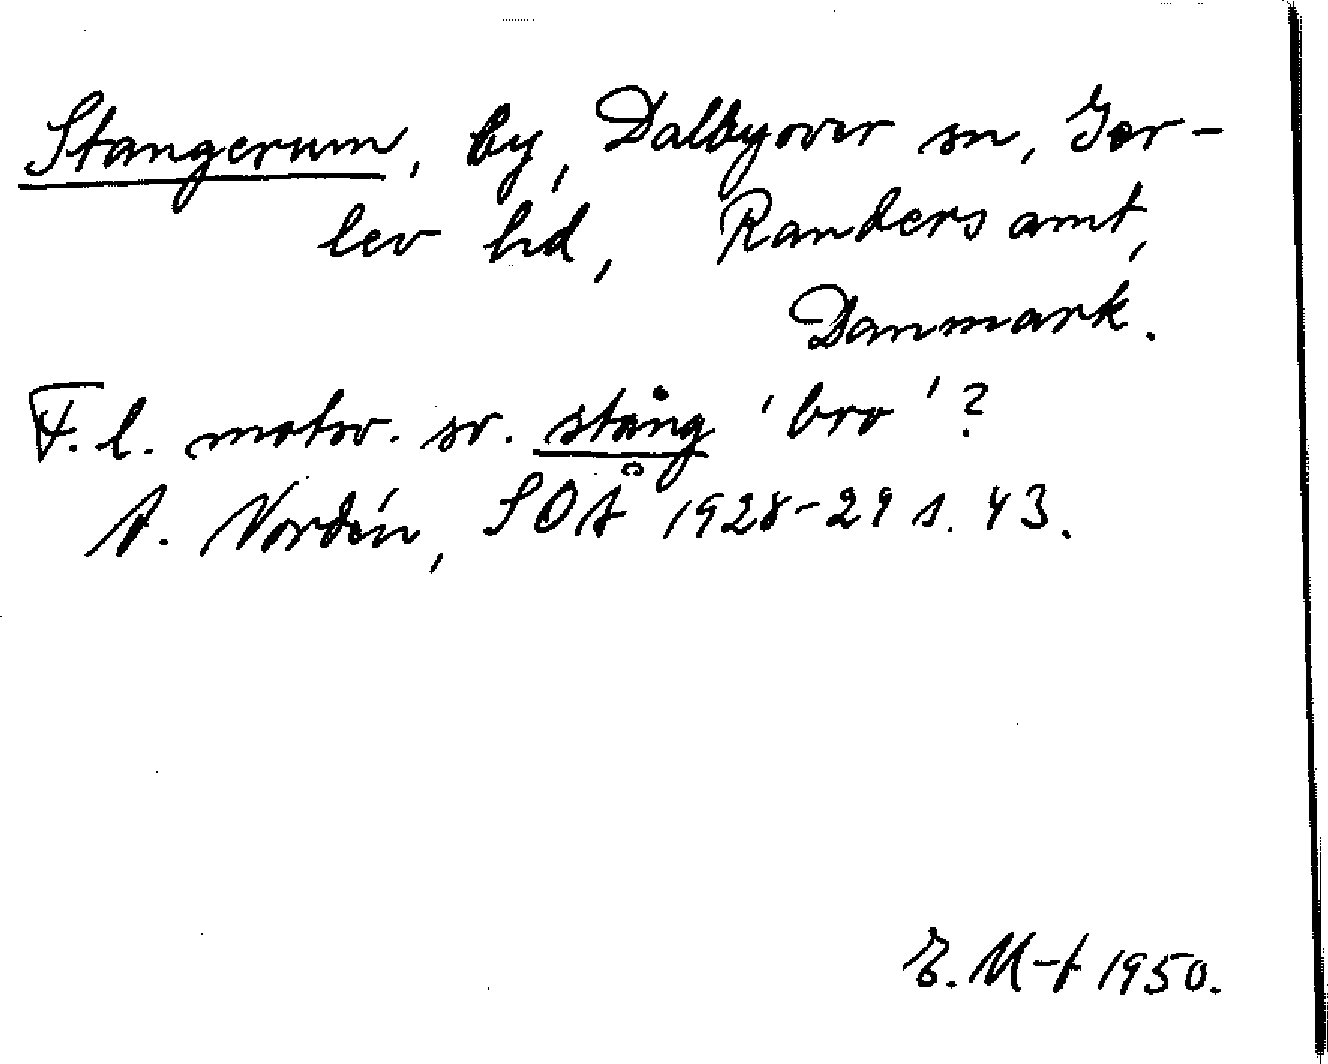 Stangerum, by, Dalbyover sn, Gør-
lev hd, Randers amt,
Danmark.
F. l. motsv. sv. stång 'bro'?
A. Nordén, SOÅ 1928-29 s. 43.
E. M-t 1950.